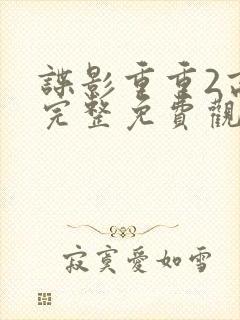 諜影重重2高
完整免費觀
寂寞愛如雪